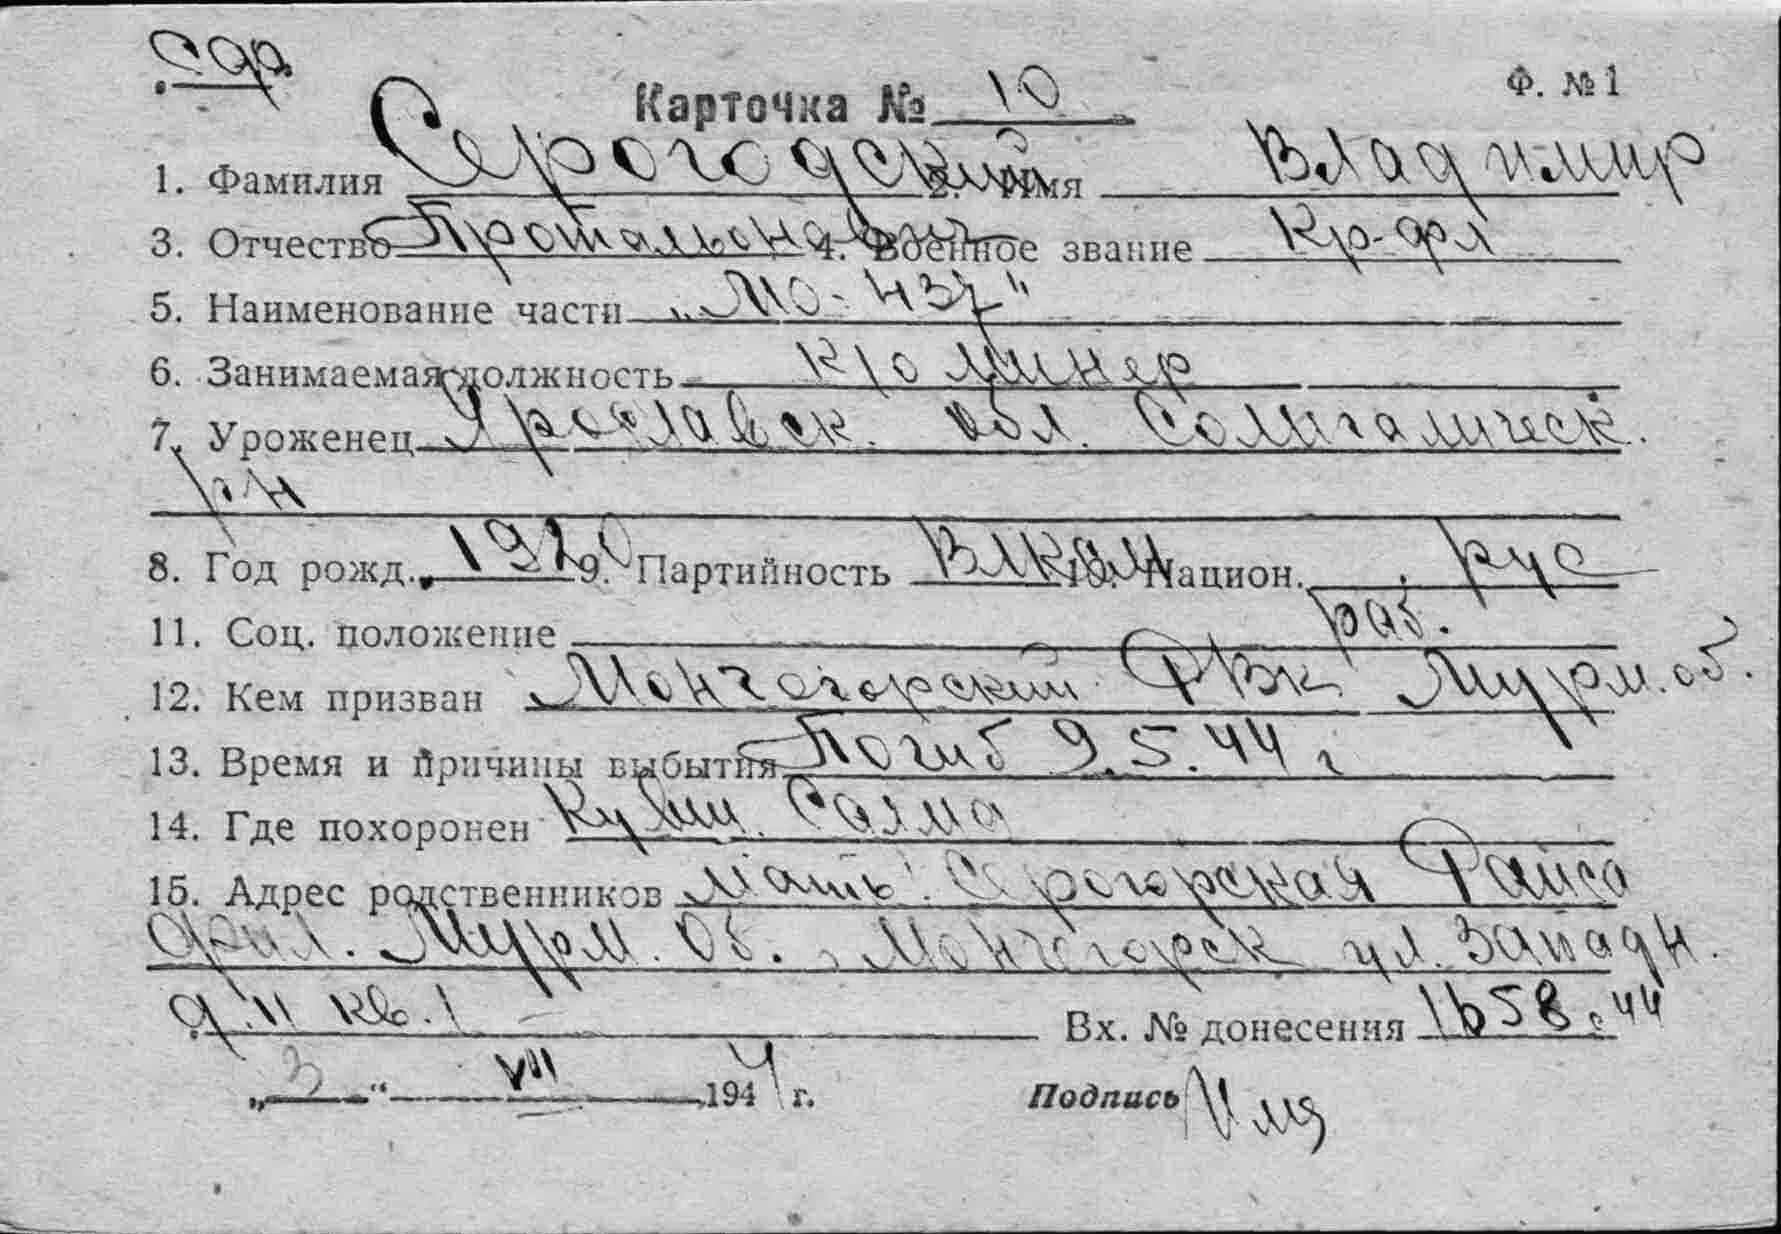 Карточка № 10 Ф. № 1
1. Фамилия Серогодский 2. Имя Владимир
3. Отчество 4. Военное звание Кр-фл
5. Наименование части „МО-437"
6. Занимаемая должность минер
7. Уроженец Ярославск. обл. Солигаличск.
рн
8. Год рожд. 1920 9. Партийность ВЛКСМ 10. Национ. рус
11. Соц. положение раб.
12. Кем призван Мончегорский РВК Мурм. об.
13. Время и причины выбытия Погиб 9.5.44 г
14. Где похоронен Кувш. Салма
15. Адрес родственников Мать: Серогорская Раиса
Фил. Мурм. Об., Мончегорск ул. Западн.
д. 11 кв. 1 Вх. № донесения 1658с 44
„3" VII 1944 г. Подпись